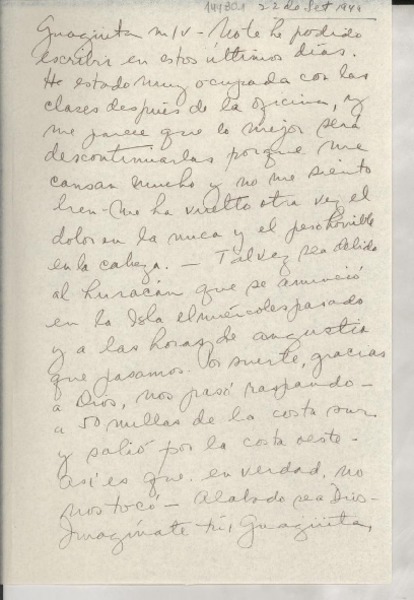 144321 22 de Set 1949
Guagüita m/v - No te he podido
escribir en estos últimos días.
He estado muy ocupada con las
clases después de la oficina, y
me parece que lo mejor será
descontinuarlas porque me
cansan mucho y no me siento
bien - Me ha vuelto otra vez el
dolor en la nuca y el peso horrible
en la cabeza. - Tal vez sea debido
al huracán que se anunció
en la Isla el miércoles pasado
y a las horas de angustia
que pasamos. Por suerte, gracias
a Dios, nos pasó raspando -
a 50 millas de la costa sur
y salió por la costa oeste -
Así es que en verdad, no
nos tocó - Alabado sea Dios -
Imagínate tú, Guagüita,